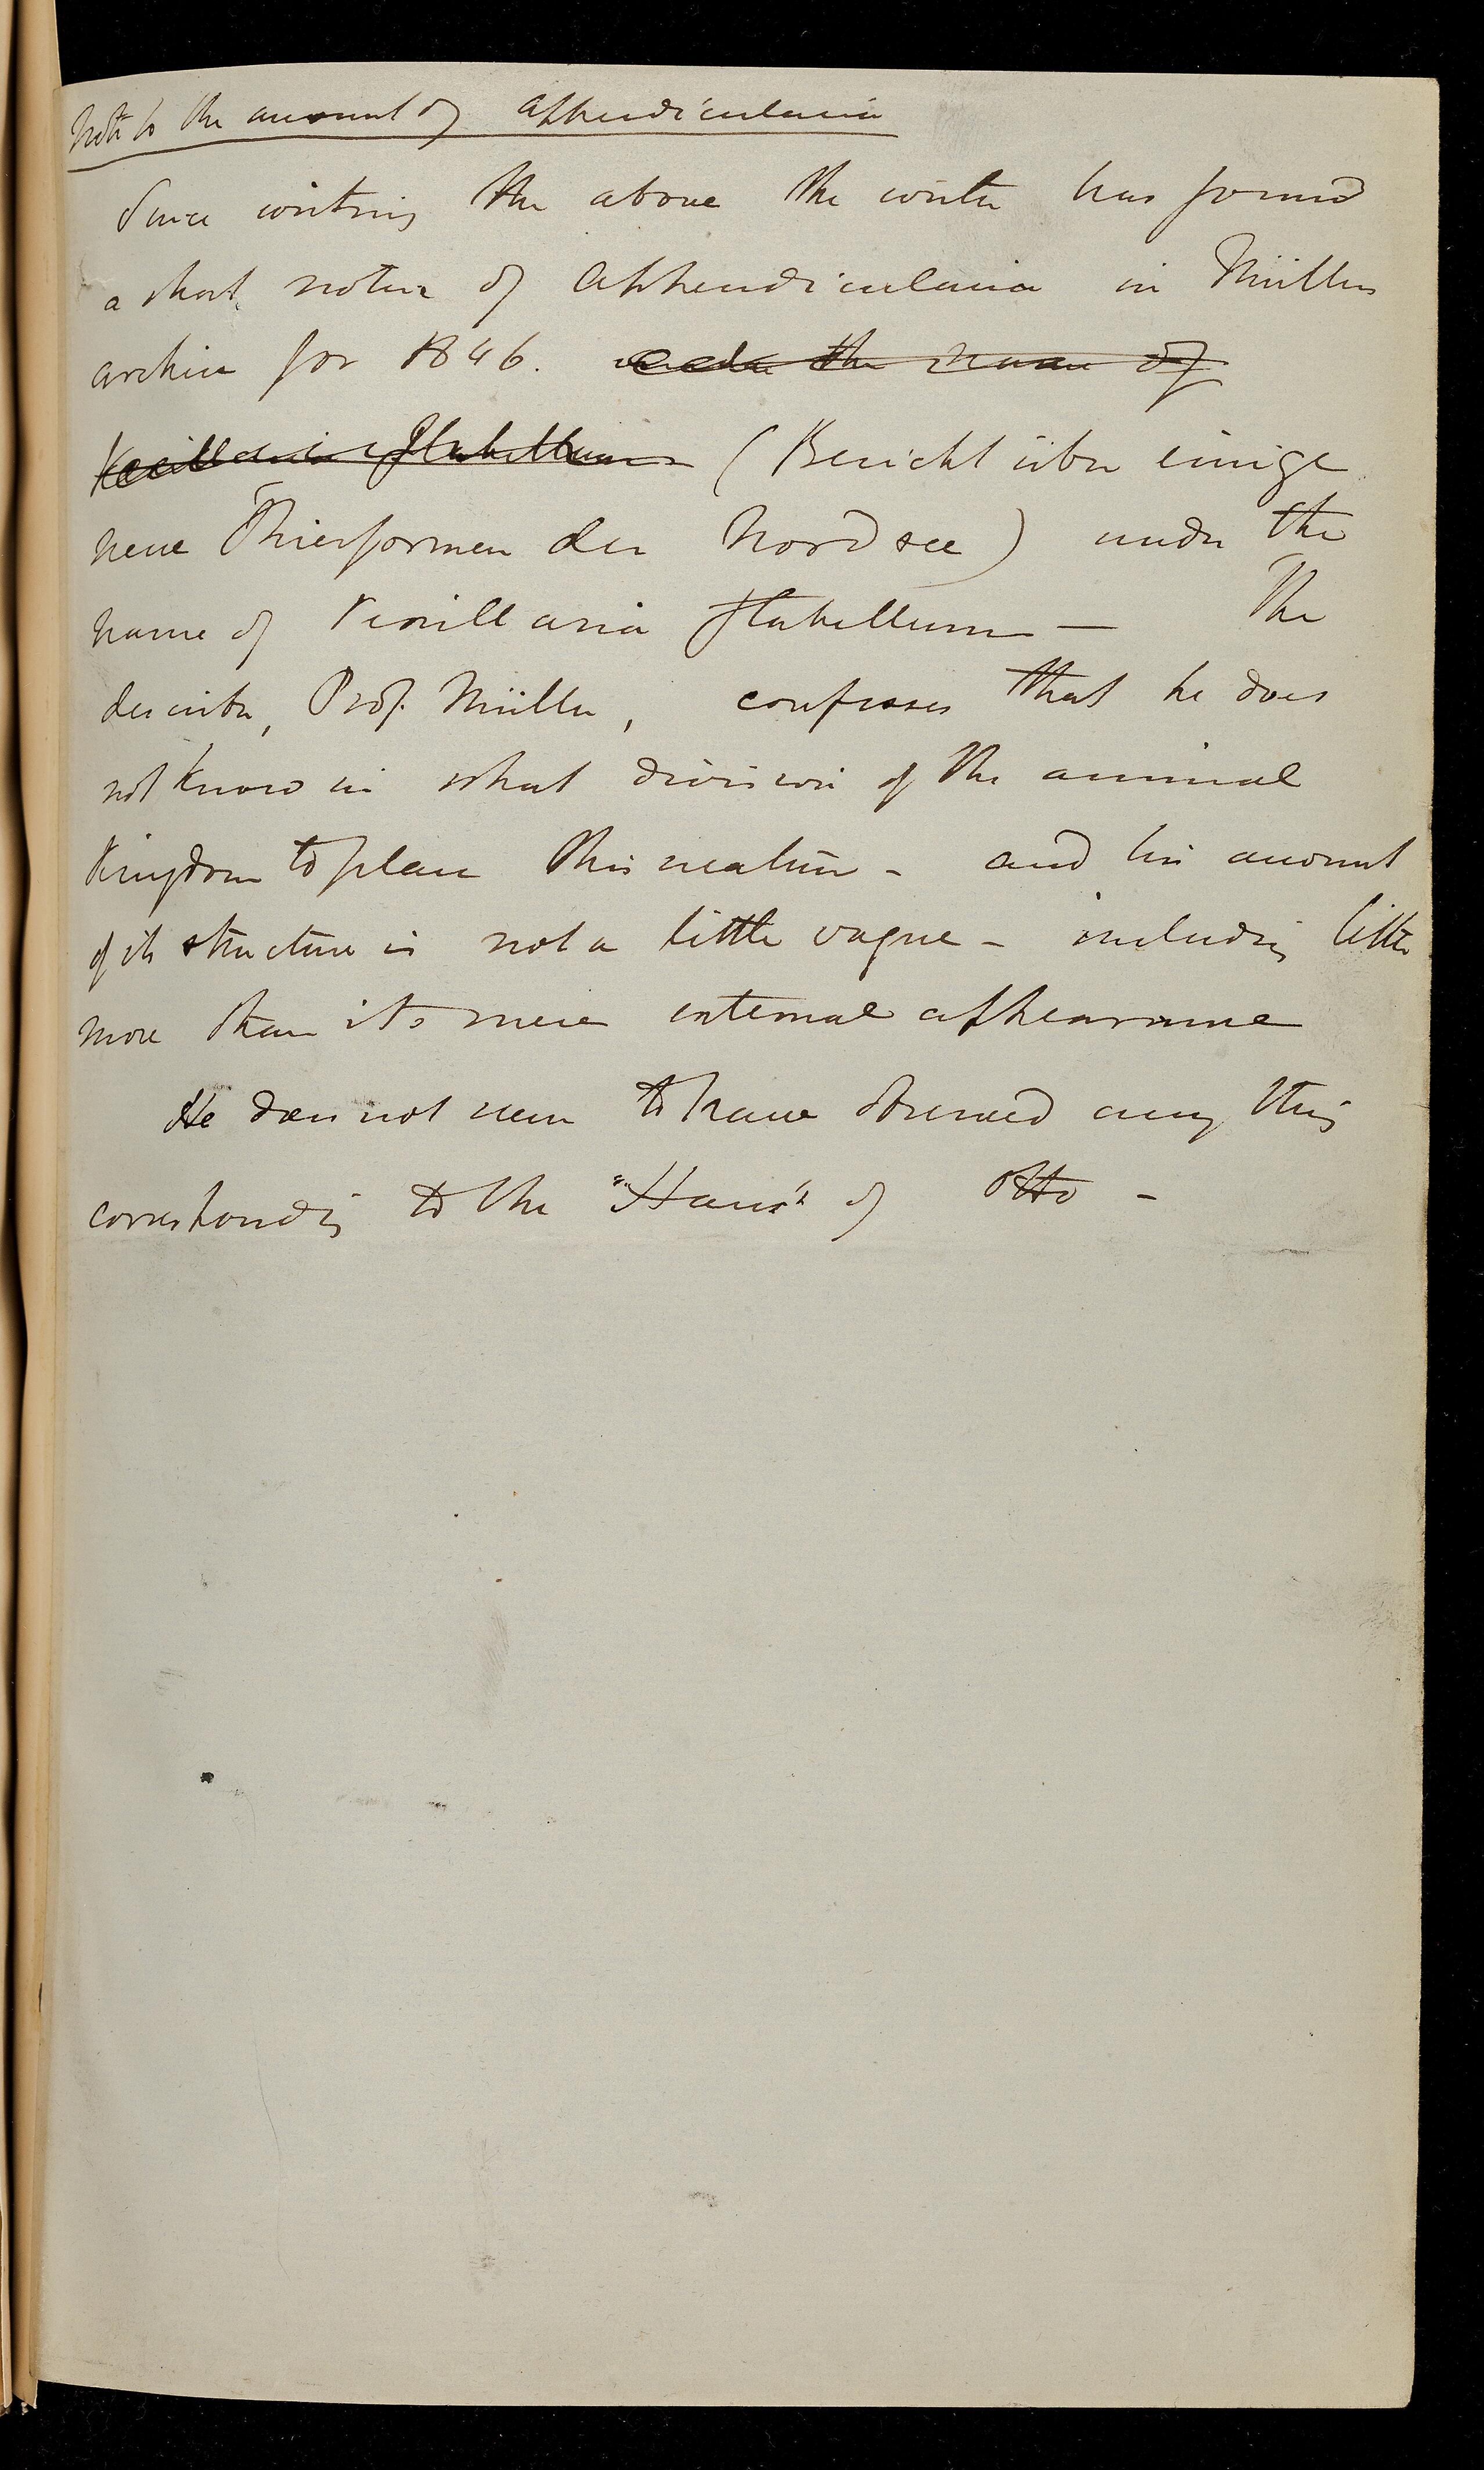 Note to the account of Appendicularia
Since writing the above the writer has found
a short notice of Appendicularia in Müllers
archiv for 1846. under the name of
Vexillaria flabellum (Bericht über einige
neue Thierformen der Nordsee) under the
name of Vexillaria flabellum — The
describer, Prof. Müller, confesses that he does
not know in what division of the animal
Kingdom to place this creature - and his account
of its structure is not a little vague - including little
more than its mere external appearance
He does not seem to have observed any thing
corresponding to the "Haus" of